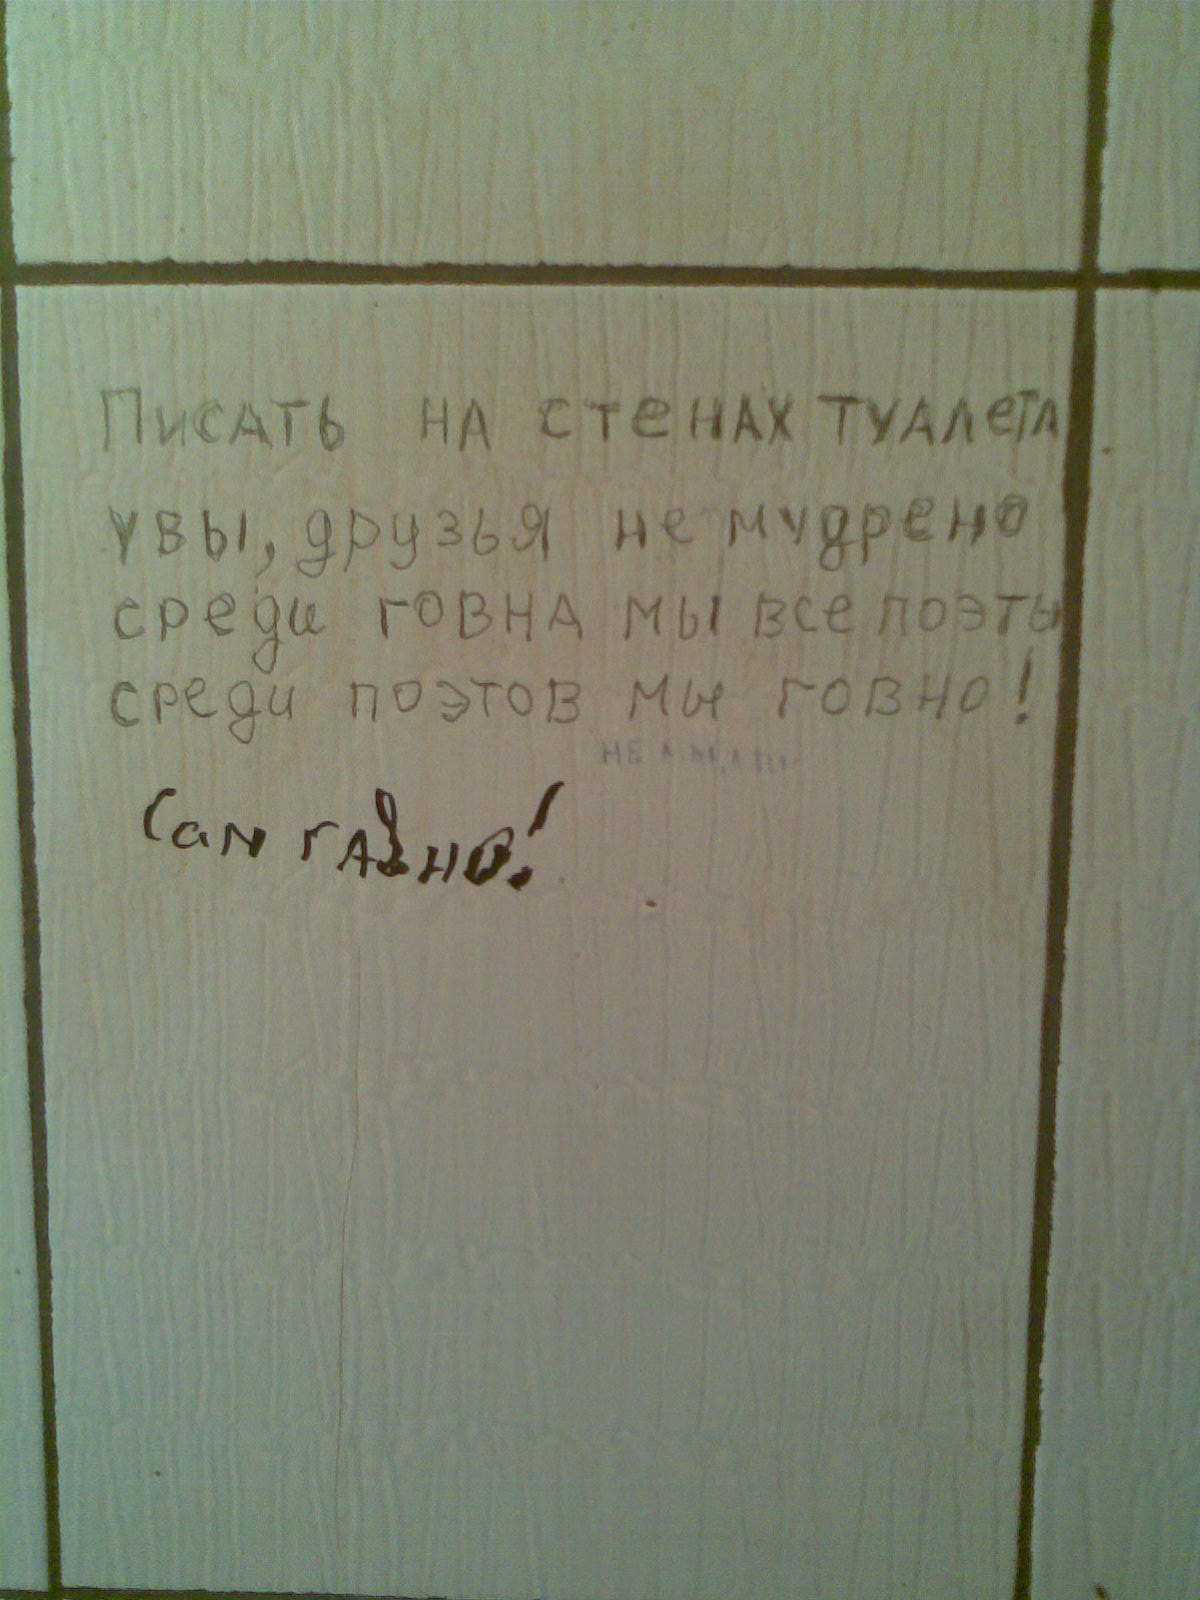 Писать на стенах туалета
увы, друзья не мудрено
среди говна мы все поэты
среди поэтов мы говно!
Сам гавно!